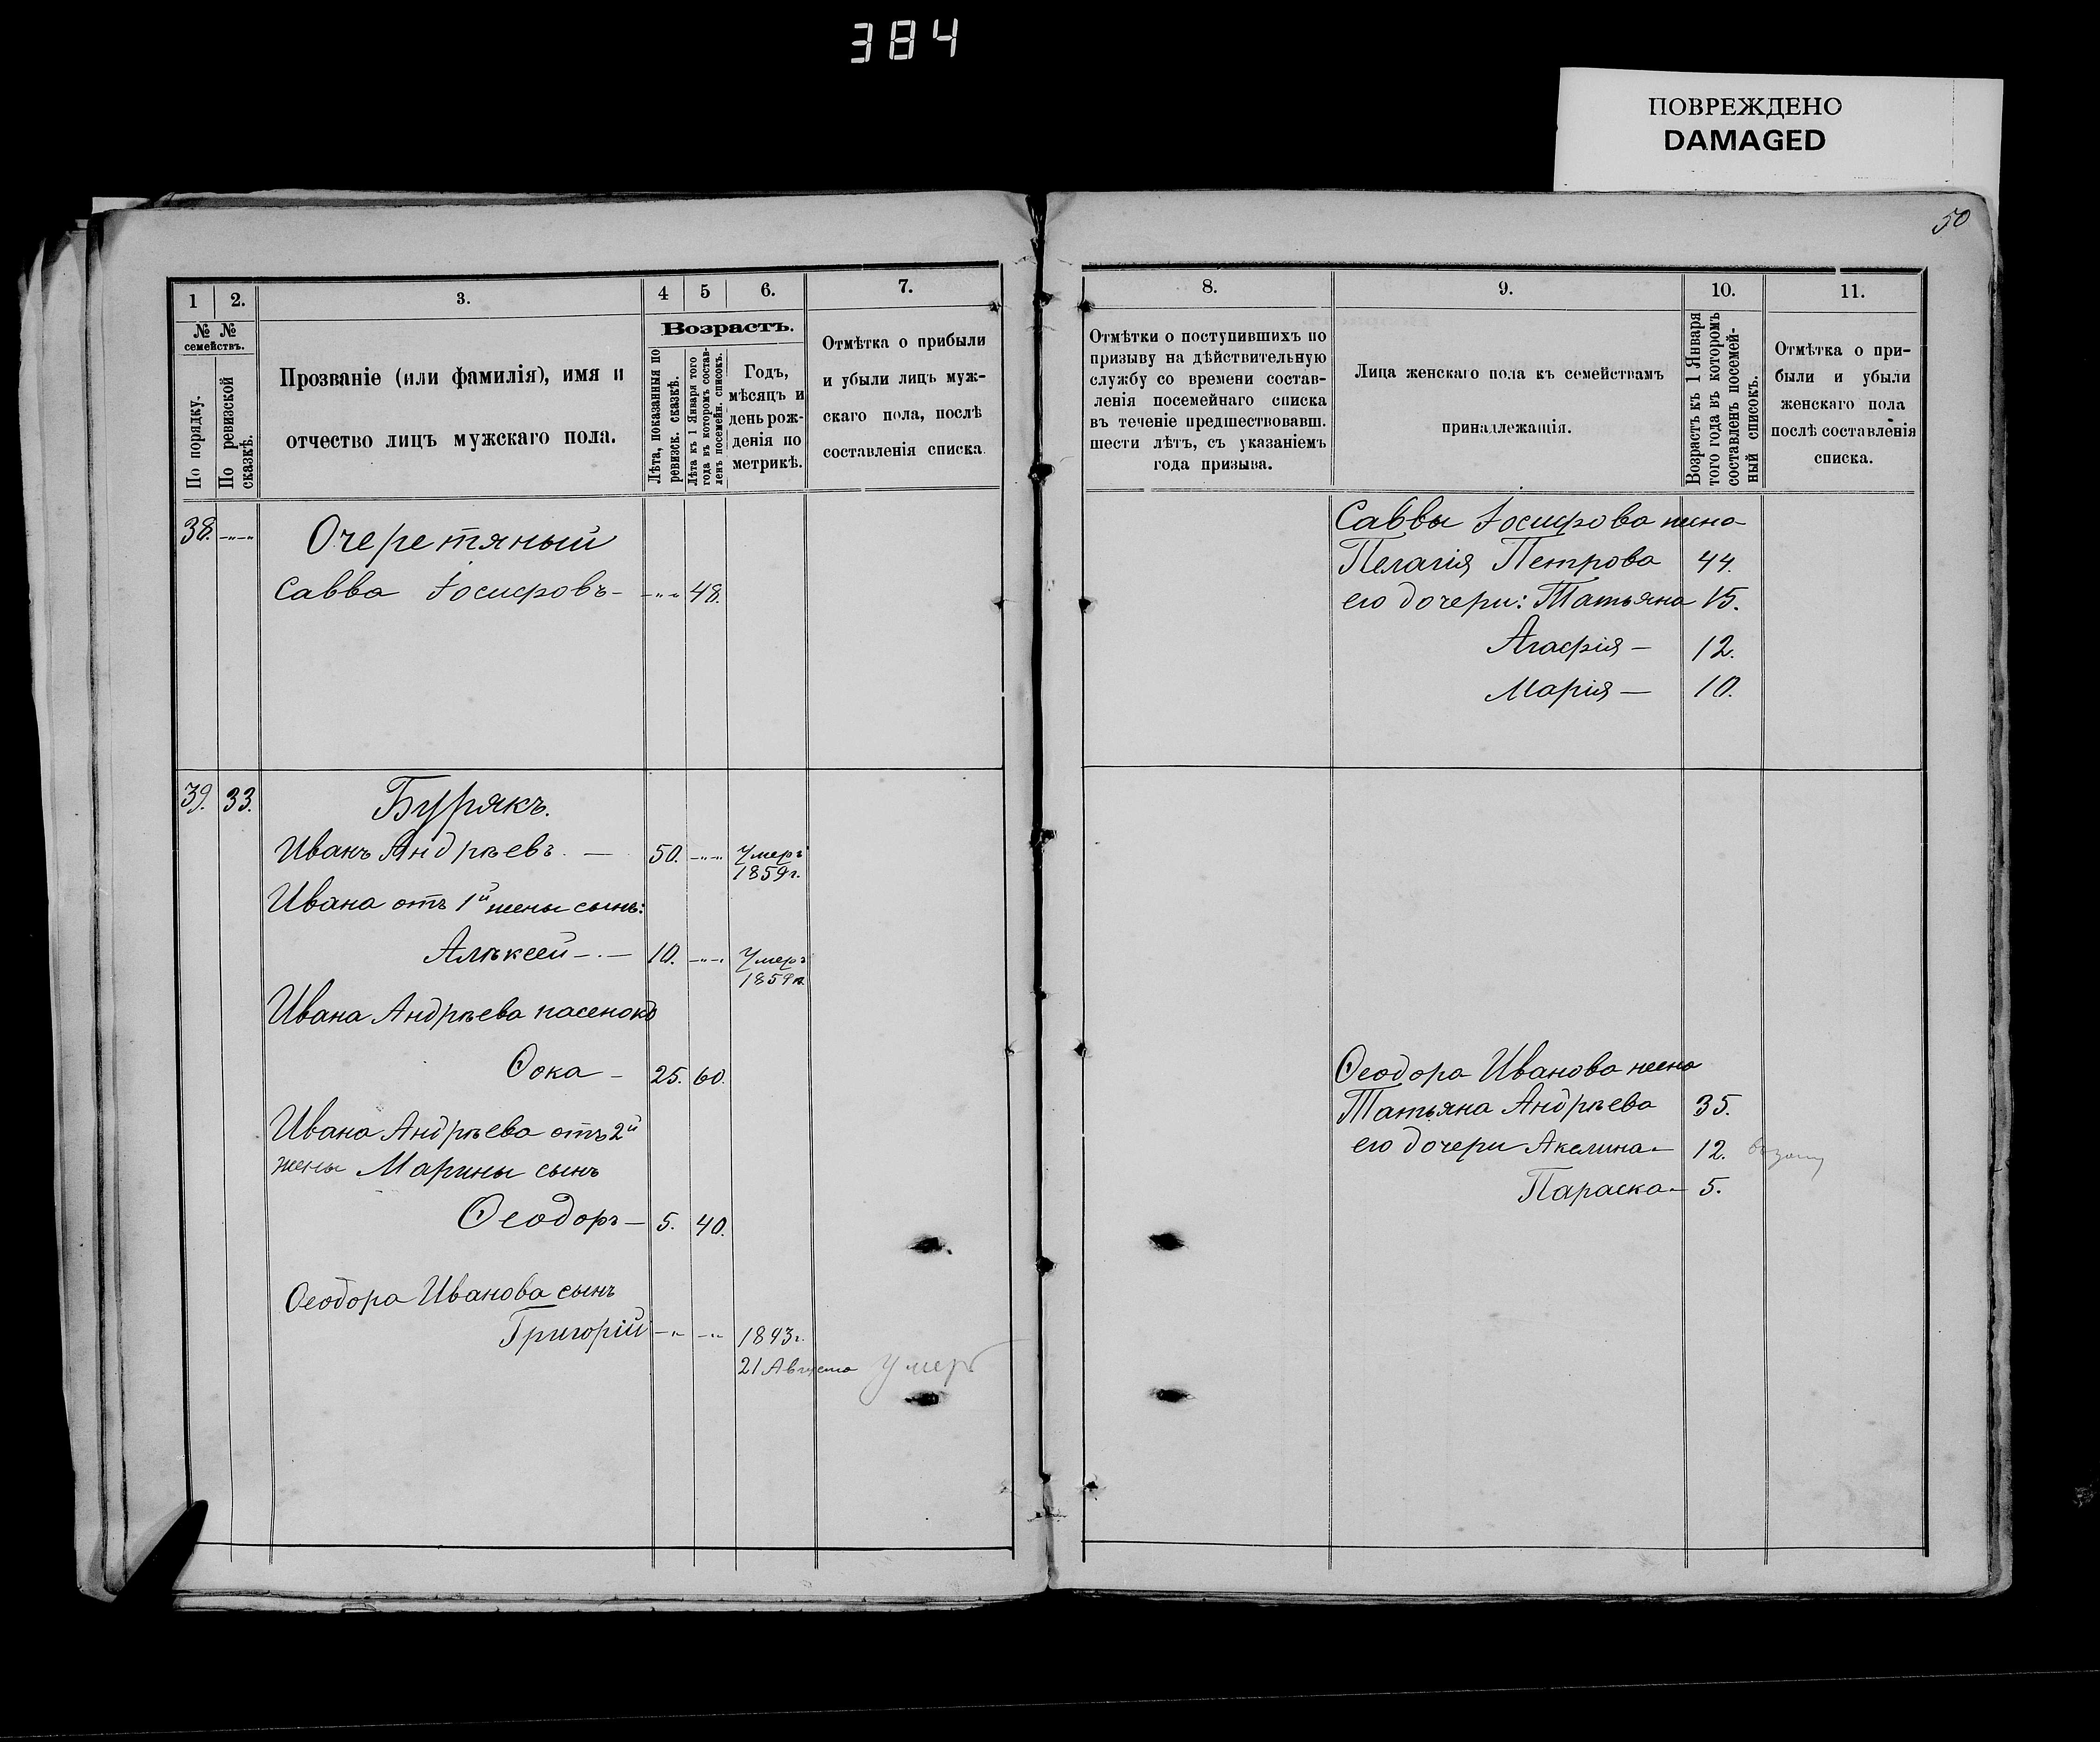 384
ПОВРЕЖДЕНО
DAMAGED
50
1
2.
3.
4
5
6.
7.
№ №
семействъ.
По порядку.
По ревизской
сказкѣ.
Прозваніе (или фамилія), имя и
отчество лицъ мужскаго пола.
Возрастъ.
Лѣта, показанныя по
ревизск. сказкѣ.
Лѣта къ 1 Января того
года въ которомъ состав-
ленъ посемейн. списокъ.
Годъ,
мѣсяцъ и
день рож-
денія по
метрикѣ.
Отмѣтка о прибыли
и убыли лицъ муж-
скаго пола, послѣ
составленія списка
38. -„-„
Очеретяный
Савва Іосифовъ- -„-„ 48.
39. 33.
Бурякъ.
Иванъ Андрѣевъ. — 50. -„-„ Умеръ
1859г.
Ивана отъ 1й жены сынъ:
Алѣксей-.- 10. -„-„ Умеръ
1859г.
Ивана Андрѣева пасенокъ
Ѳока - 25. 60.
Ивана Андрѣева отъ 2й
жены Марины сынъ
Ѳеодоръ- 5. 40.
Ѳеодора Иванова сынъ
Григорій -„ -„ 1893г.
21 Августа Умеръ
8.
9.
10.
11.
Отмѣтки о поступившихъ по
призыву на дѣйствительную
службу со времени состав-
ленія посемейнаго списка
въ теченіе предшествовавш.
шести лѣтъ, съ указаніемъ
года призыва.
Лица женскаго пола къ семействамъ
принадлежащія.
Возрастъ къ 1 Января
того года въ которомъ
составленъ посемей-
ный списокъ.
Отмѣтка о при-
были и убыли
женскаго пола
послѣ составленія
списка.
Саввы Іосифова жена
Пелагія Петрова 44.
его дочери: Татьяна 15.
Агафія- 12.
Марія- 10.
Ѳеодора Иванова жена
Татьяна Андрѣева 35.
его дочери Акелина- 12.
Параска- 5.